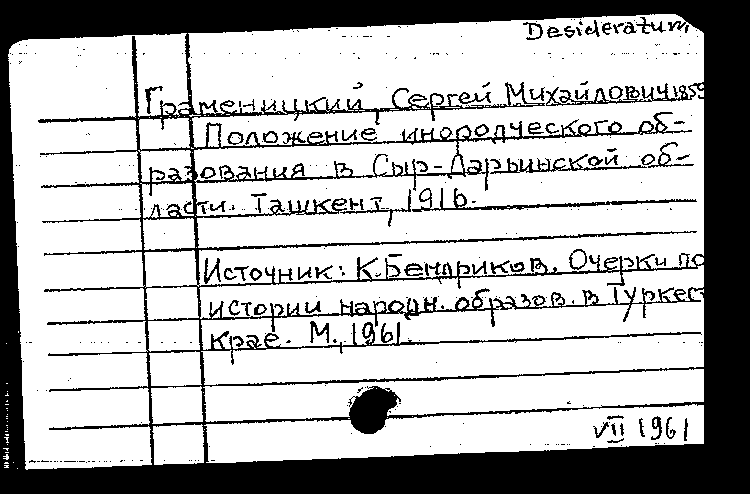 Desideratum
Граменицкий, Сергей Михайлович 1859
Положение инородческого об-
разования в Сыр-Дарьинской об-
ласти. Ташкент, 1916.
Источник: К. Бендриков. Очерки по
истории народн. образов. в Туркест
крае. М., 1961.
VII 1961